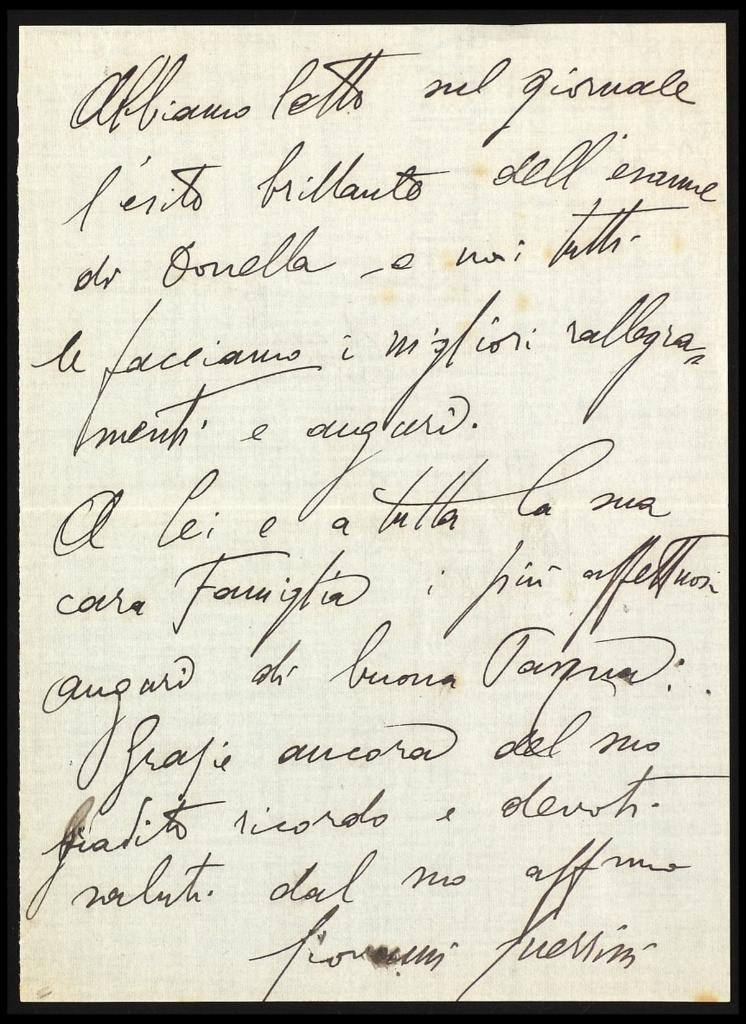 Abbiamo letto sul giornale
l'esito brillante dell'esame
di Donella e noi tutti
le facciamo i migliori rallegra=
menti e auguri.
A lei e a tutta la sua
cara Famiglia i più affettuosi
auguri di buona Pasqua.
Grazie ancora del suo
gradito ricordo e devoti
saluti dal suo affmo
Giovanni Guerrini